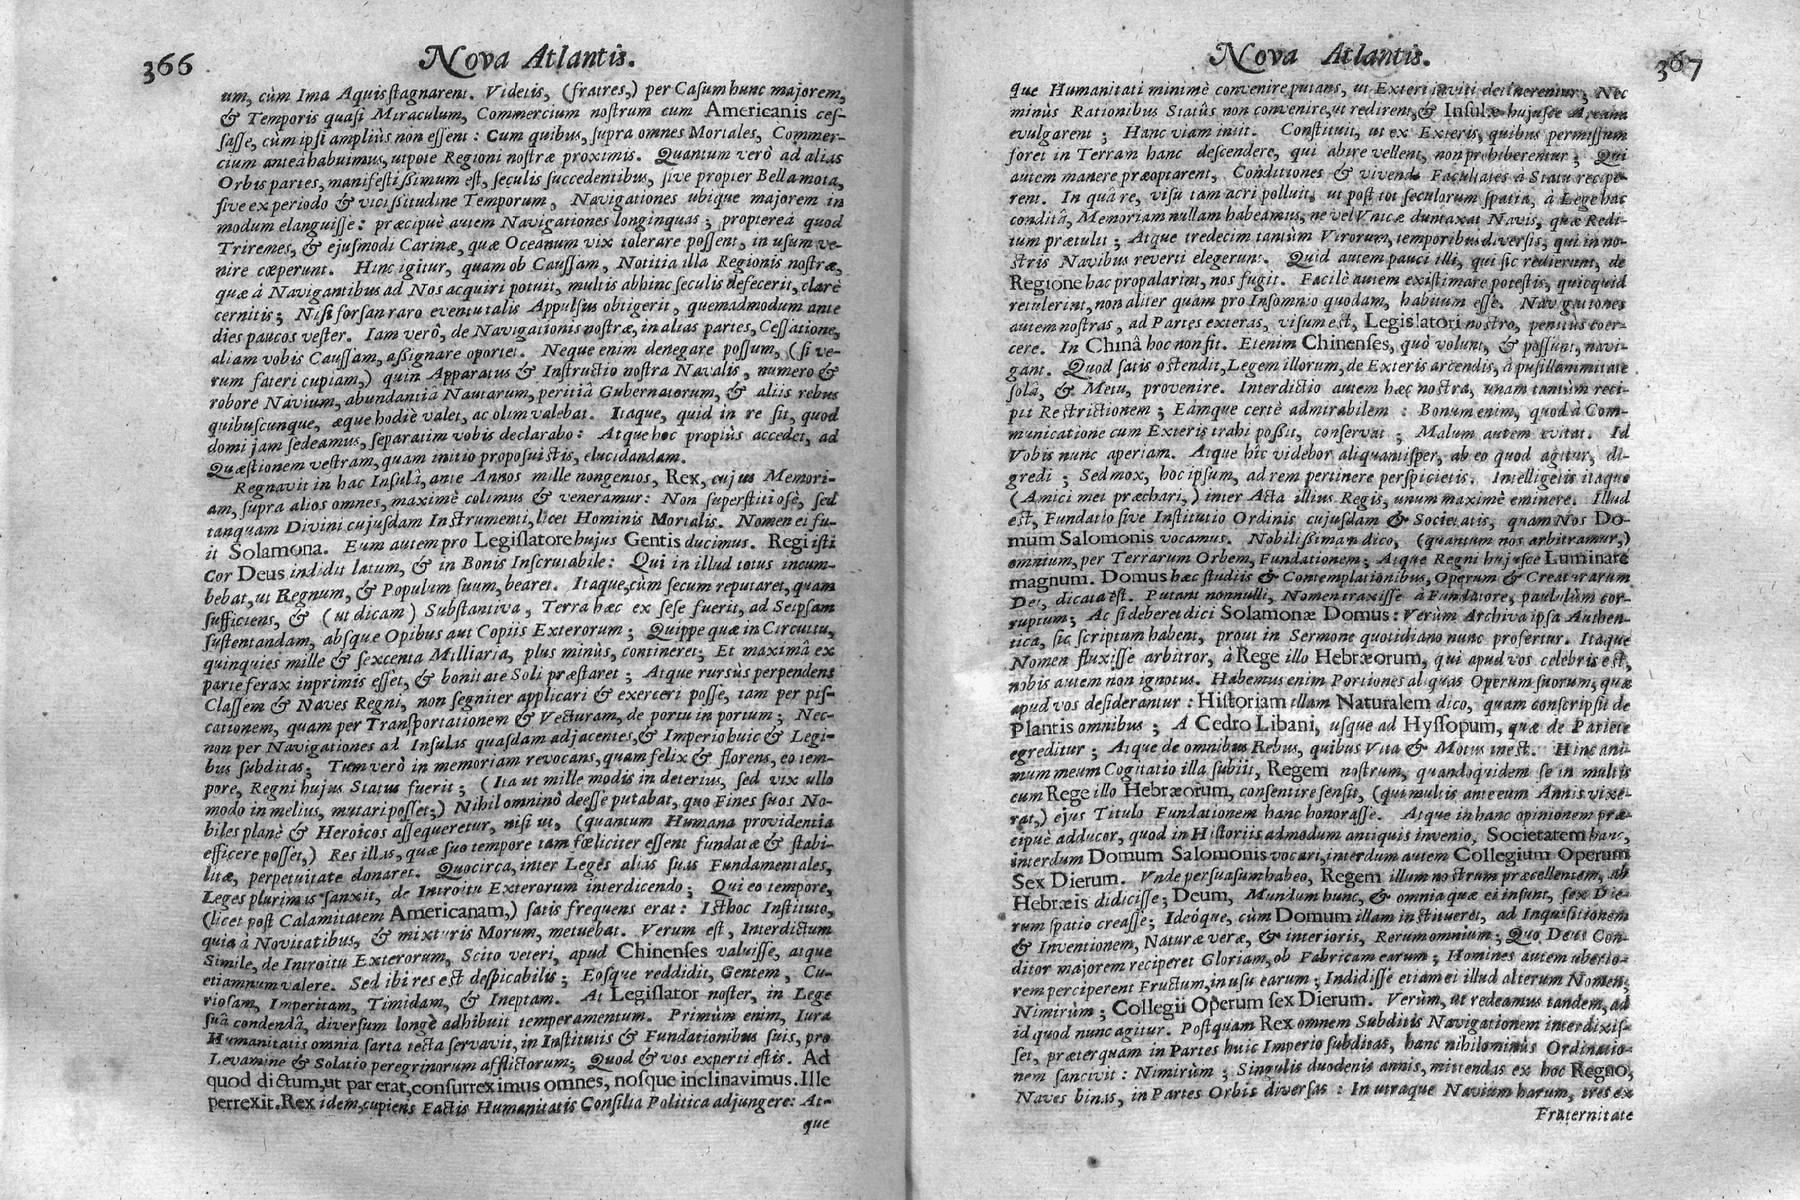 366
Nova Atlantis.
um, cùm Ima Aquis stagnarent. Videtis, (fratres,) per Casum hunc majorem,
& Temporis quasi Miraculum, Commercium nostrum cum Americanis ces-
sasse, cùm ipsi ampliùs non essent: Cum quibus, supra omnes Mortales, Commer-
cium anteà habuimus, utpote Regioni nostræ proximis. Quantum verò ad alias
Orbis partes, manifestissimum est, seculis succedentibus, sive propter Bella mota,
sive ex periodo & vicissitudine Temporum, Navigationes ubique majorem in
modum elanguisse: præcipuè autem Navigationes longinquas; proptereà quod
Triremes, & ejusmodi Carinæ, quæ Oceanum vix tolerare possent, in usum ve-
nire cœperunt. Hinc igitur, quam ob Caussam, Notitia illa Regionis nostræ,
quæ à Navigantibus ad Nos acquiri potuit, multis abhinc seculis defecerit, clarè
cernitis; Nisi forsan raro eventu talis Appulsus obtigerit, quemadmodum ante
dies paucos vester. Iam verò, de Navigationis nostræ, in alias partes, Cessatione,
aliam vobis Caussam, assignare oportet. Neque enim denegare possum, (si ve-
rum fateri cupiam,) quin Apparatus & Instructio nostra Navalis, numero &
robore Navium, abundantiâ Nautarum, peritiâ Gubernatorum, & aliis rebus
quibuscunque, æque hodiè valet, ac olim valebat. Itaque, quid in re sit, quod
domi jam sedeamus, separatim vobis declarabo: Atque hoc propiùs accedet, ad
Quæstionem vestram, quam initio proposuistis, elucidandam.
Regnavit in hac Insulâ, ante Annos mille nongentos, Rex, cujus Memori-
am, supra alios omnes, maximè colimus & veneramur: Non superstitiosè, sed
tanquam Divini cujusdam Instrumenti, licet Hominis Mortalis. Nomen ei fu-
it Solamona. Eum autem pro Legislatore hujus Gentis ducimus. Regi isti
Cor Deus indidit latum, & in Bonis Inscrutabile: Qui in illud totus incum-
bebat, ut Regnum, & Populum suum, bearet. Itaque, cùm secum reputaret, quam
sufficiens, & (ut dicam) Substantiva, Terra hæc ex sese fuerit, ad Seipsam
sustentandam, absque Opibus aut Copiis Exterorum; Quippe quæ in Circuitu,
quinquies mille & sexcenta Milliaria, plus minùs, contineret; Et maximâ ex
parte ferax inprimis esset, & bonitate Soli præstaret; Atque rursùs perpendens
Classem & Naves Regni, non segniter applicari & exerceri posse, tam per pis-
cationem, quam per Transportationem & Vecturam, de portu in portum; Nec-
non per Navigationes ad Insulas quasdam adjacentes, & Imperio huic & Legi-
bus subditas; Tum verò in memoriam revocans, quam felix & florens, eo tem-
pore, Regni hujus Status fuerit; (Ita ut mille modis in deterius, sed vix ullo
modo in melius, mutari posset;) Nihil omninò deesse putabat, quo Fines suos No-
biles planè & Heroicos assequeretur, nisi ut, (quantum Humana providentia
efficere posset,) Res illas, quæ suo tempore tam fœliciter essent fundatæ & stabi-
litæ, perpetuitate donaret. Quocirca, inter Leges alias suas Fundamentales,
Leges plurimas sanxit, de Introitu Exterorum interdicendo; Qui eo tempore,
(licet post Calamitatem Americanam,) satis frequens erat: Isthoc Instituto,
quia à Novitatibus, & mixturis Morum, metuebat. Verum est, Interdictum
simile, de Introitu Exterorum, Scito veteri, apud Chinenses valuisse, atque
etiamnum valere. Sed ibi res est despicabilis; Eosque reddidit, Gentem, Cu-
riosam, Imperitam, Timidam, & Ineptam. At Legislator noster, in Lege
suâ condendâ, diversum longè adhibuit temperamentum. Primùm enim, Iura
Humanitatis omnia sarta tecta servavit, in Institutis & Fundationibus suis, pro
Levamine & Solatio peregrinorum afflictorum; Quod & vos experti estis. Ad
quod dictum, ut par erat, consurreximus omnes, nosque inclinavimus. Ille
perrexit. Rex idem, cupiens Factis Humanitatis Consilia Politica adjungere: At-
que
367
Nova Atlantis.
que Humanitati minimè convenire putans, ut Exteri inviti detinerentur; Nec
minùs Rationibus Statûs non convenire, ut redirent, & Insulæ hujusce Arcana
evulgarent; Hanc viam iniit. Constituit, ut ex Exteris, quibus permissum
foret in Terram hanc descendere, qui abire vellent, non prohiberentur; Qui
autem manere præoptarent, Conditiones & vivendi Facultates à Statu recipe-
rent. In quâ re, visu tam acri polluit, ut post tot seculorum spatia, à Lege hac
conditâ, Memoriam nullam habeamus, ne vel Vnicæ duntaxat Navis, quæ Redi-
tum prætulit; Atque tredecim tantùm Virorum, temporibus diversis, qui in no-
stris Navibus reverti elegerunt. Quid autem pauci illi, qui sic redierunt, de
Regione hac propalarint, nos fugit. Facilè autem existimare potestis, quicquid
retulerint, non aliter quam pro Insomnio quodam, habitum esse. Navigationes
autem nostras, ad Partes exteras, visum est, Legislatori nostro, penitùs coer-
cere. In Chinâ hoc non fit. Etenim Chinenses, quò volunt, & possunt, navi-
gant. Quod satis ostendit, Legem illorum, de Exteris arcendis, à pusillanimitate
solâ, & Metu, provenire. Interdictio autem hæc nostra, unam tantùm reci-
pit Restrictionem; Eamque certè admirabilem: Bonum enim, quod à Com-
municatione cum Exteris trahi possit, conservat; Malum autem evitat. Id
Vobis nunc aperiam. Atque hîc videbor aliquantisper, ab eo quod agitur, di-
gredi; Sed mox, hoc ipsum, ad rem pertinere perspicietis. Intelligetis itaque
(Amici mei præchari,) inter Acta illius Regis, unum maximè eminere. Illud
est, Fundatio sive Institutio Ordinis cujusdam & Societatis, quam Nos Do-
mum Salomonis vocamus. Nobilissimam dico, (quantum nos arbitramur,)
omnium, per Terrarum Orbem, Fundationem; Atque Regni hujusce Luminare
magnum. Domus hæc studiis & Contemplationibus, Operum & Creaturarum
Dei, dicata est. Putant nonnulli, Nomen traxisse à Fundatore, paululùm cor-
ruptum; Ac si deberet dici Solamonæ Domus: Verùm Archiva ipsa Authen-
tica, sic scriptum habent, prout in Sermone quotidiano nunc profertur. Itaque
Nomen fluxisse arbitror, à Rege illo Hebræorum, qui apud vos celebris est,
nobis autem non ignotus. Habemus enim Portiones aliquas Operum suorum, quæ
apud vos desiderantur: Historiam illam Naturalem dico, quam conscripsit de
Plantis omnibus; A Cedro Libani, usque ad Hyssopum, quæ de Pariete
egreditur; Atque de omnibus Rebus, quibus Vita & Motus inest. Hinc ani-
mum meum Cogitatio illa subiit, Regem nostrum, quandoquidem se in multis
cum Rege illo Hebræorum, consentire sensit, (qui multis ante eum Annis vixe-
rat,) ejus Titulo Fundationem hanc honorasse. Atque in hanc opinionem præ-
cipuè adducor, quod in Historiis admodum antiquis invenio, Societatem hanc,
interdum Domum Salomonis vocari, interdum autem Collegium Operum
Sex Dierum. Vnde persuasum habeo, Regem illum nostrum præcellentem, ab
Hebræis didicisse; Deum, Mundum hunc, & omnia quæ ei insunt, sex Die-
rum spatio creasse; Ideóque, cùm Domum illam institueret, ad Inquisitionem
& Inventionem, Naturæ veræ, & interioris, Rerum omnium; Quo Deus Con-
ditor majorem reciperet Gloriam, ob Fabricam earum; Homines autem uberio-
rem perciperent Fructum, in usu earum; Indidisse etiam ei illud alterum Nomen,
Nimirùm; Collegii Operum sex Dierum. Verùm, ut redeamus tandem, ad
id quod nunc agitur. Postquam Rex omnem Subditis Navigationem interdixis-
set, præterquam in Partes huic Imperio subditas, hanc nihilominùs Ordinatio-
nem sancivit: Nimirùm; Singulis duodenis annis, mittendas ex hoc Regno,
Naves binas, in Partes Orbis diversas: In utraque Navium harum, tres ex
Fraternitate